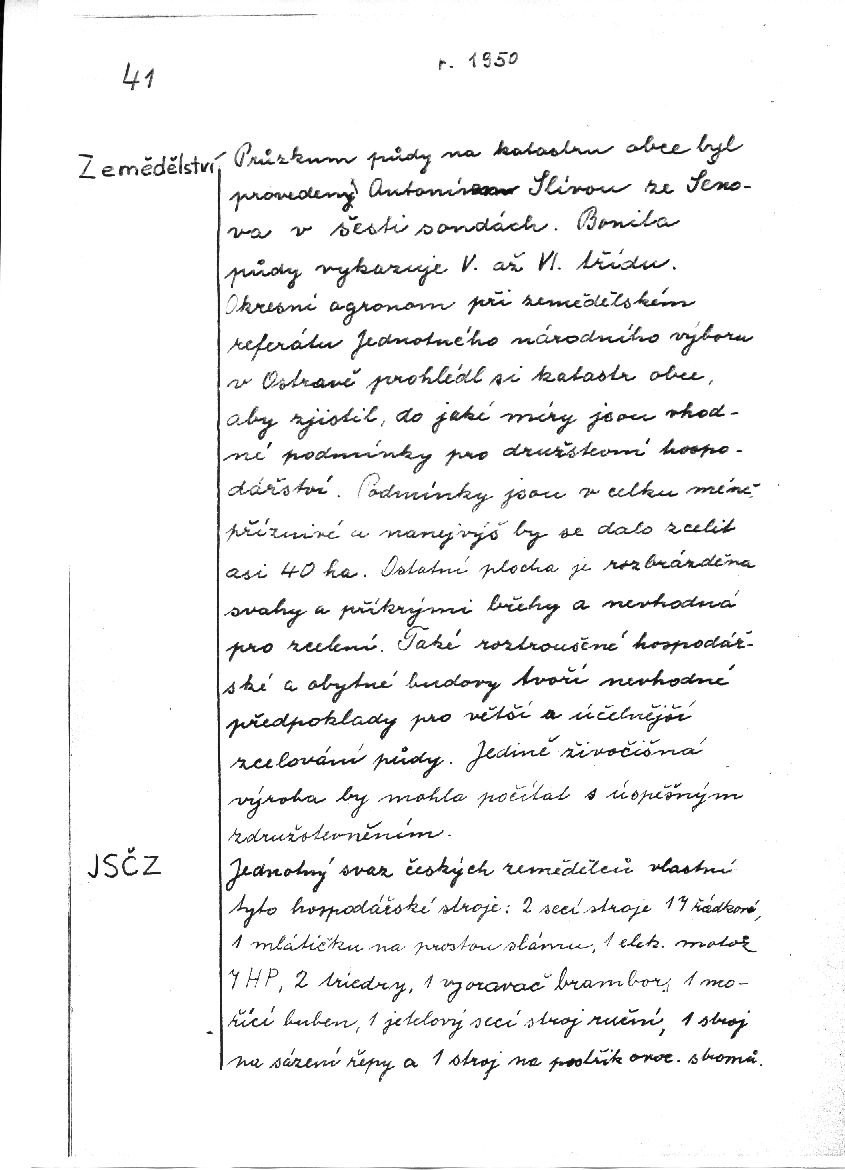 41
r. 1950
Zemědělství
Průzkum půdy na katastru obce byl
provedený Antonínem Slívou ze Šeno-
va v šesti sondách. Bonita
půdy vykazuje V. až VI. třídu.
Okresní agronom při zemědělském
referátu Jednotného národního výboru
v Ostravě prohlédl si katastr obce,
aby zjistil, do jaké míry jsou vhod-
né podmínky pro družstevní hospo-
dářství. Podmínky jsou v celku méně
příznivé a nanejvýš by se dalo zcelit
asi 40 ha. Ostatní plocha je rozbrázděna
svahy a příkrými břehy a nevhodná
pro zcelení. Také roztroušené hospodář-
ské a obytné budovy tvoří nevhodné
předpoklady pro větší a účelnější
zcelování půdy. Jedině živočišná
výroba by mohla počítat s úspěšným
združstevněním.
JSČZ
Jednotný svaz českých zemědělců vlastní
tyto hospodářské stroje: 2 secí stroje 17 řádkové,
1 mlátičku na prostou slámu, 1 elek. motor
7 HP, 2 triedry, 1 vyoravač brambor, 1 mo-
řící buben, 1 jetelový secí stroj ruční, 1 stroj
na sázení řepy a 1 stroj na postřik ovoc. stromů.